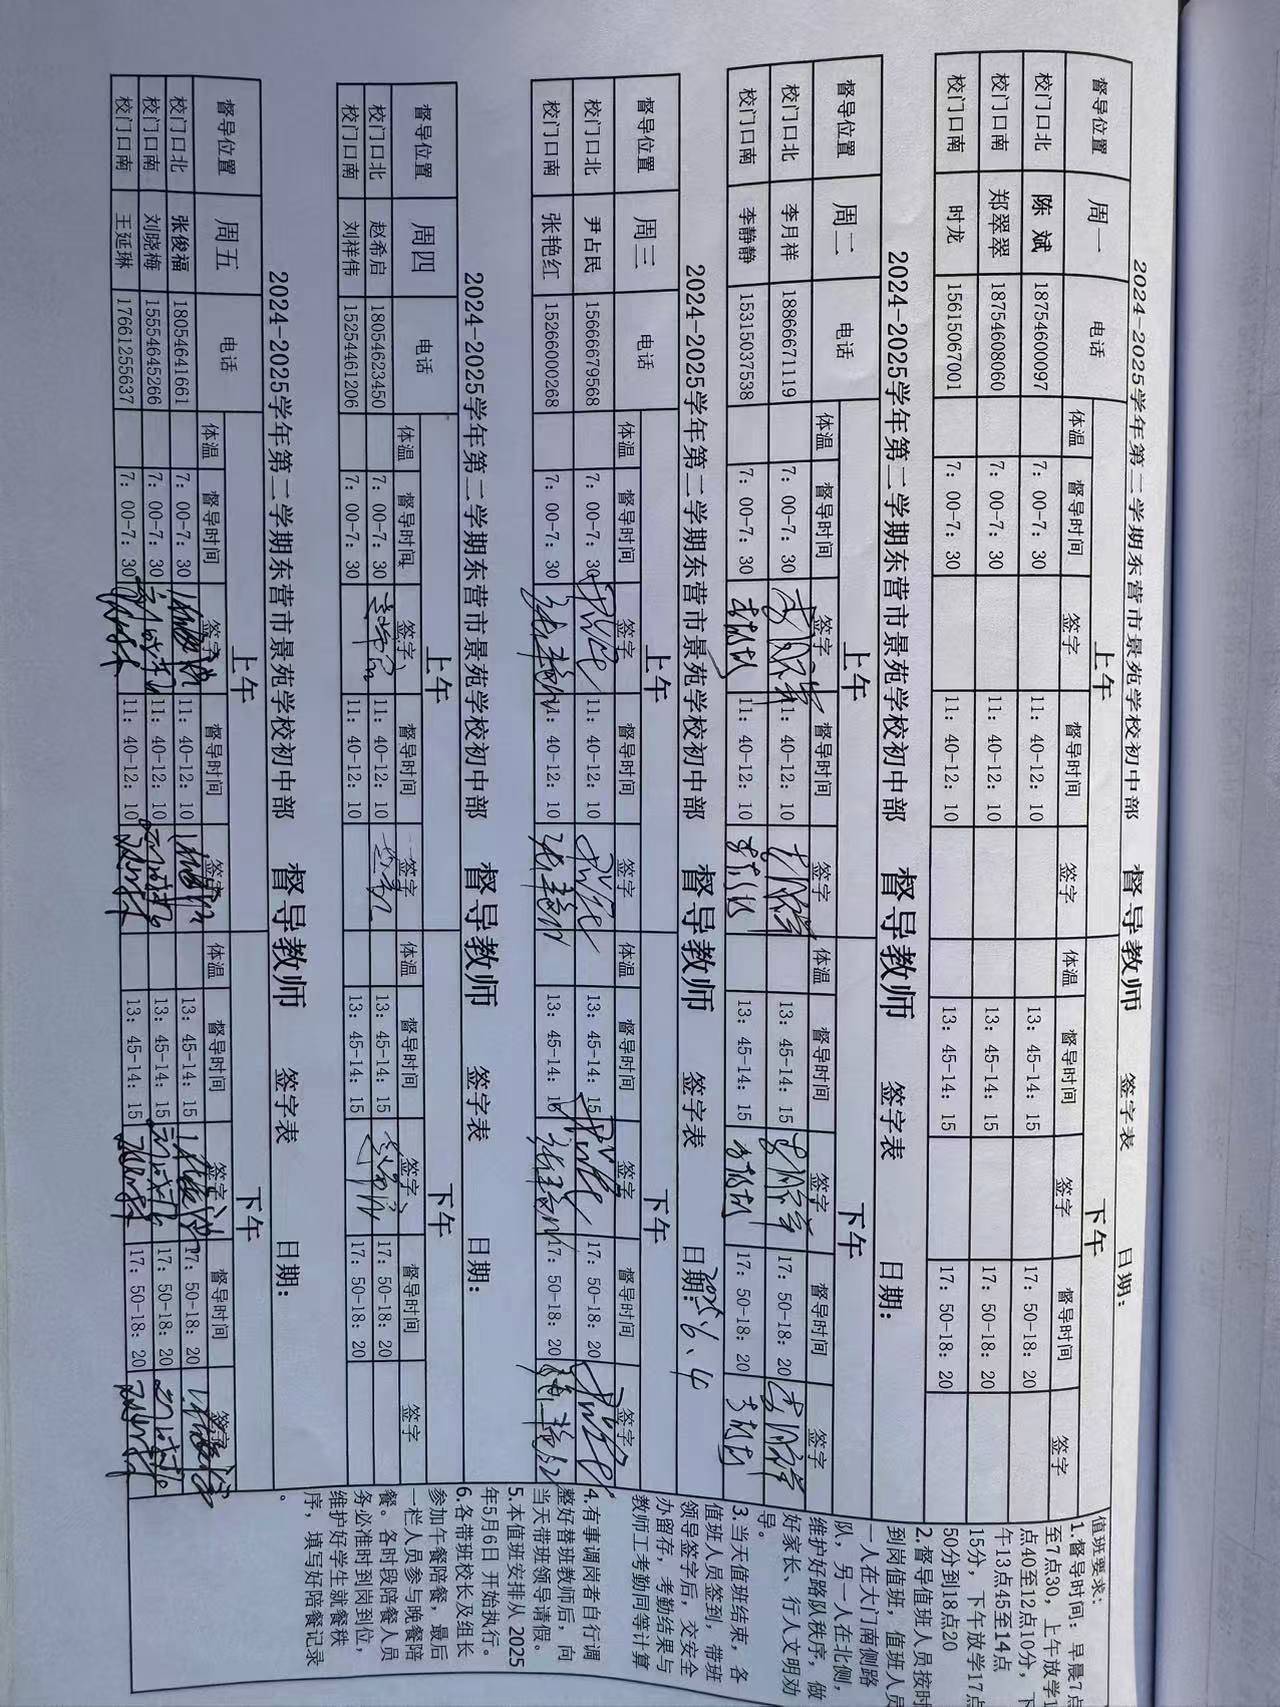 2024-2025学年第二学期东营市景苑学校初中部 督导教师 签字表 日期：
督导位置 周一 电话 上午 下午
体温 督导时间 签字 督导时间 签字 体温 督导时间 签字 督导时间 签字
校门口北 陈斌 18754600097 7：00-7：30 11：40-12：10 13：45-14：15 17：50-18：20
校门口南 郑翠翠 18754608060 7：00-7：30 11：40-12：10 13：45-14：15 17：50-18：20
校门口南 时龙 15615067001 7：00-7：30 11：40-12：10 13：45-14：15 17：50-18：20
2024-2025学年第二学期东营市景苑学校初中部 督导教师 签字表 日期：
督导位置 周二 电话 上午 下午
体温 督导时间 签字 督导时间 签字 体温 督导时间 签字 督导时间 签字
校门口北 李月祥 18866671119 7：00-7：30 李月祥 11：40-12：10 李月祥 13：45-14：15 李月祥 17：50-18：20 李月祥
校门口南 李静静 15315037538 7：00-7：30 11：40-12：10 13：45-14：15 17：50-18：20
2024-2025学年第二学期东营市景苑学校初中部 督导教师 签字表 日期：2025.6.4
督导位置 周三 电话 上午 下午
体温 督导时间 签字 督导时间 签字 体温 督导时间 签字 督导时间 签字
校门口北 尹占民 15666679568 7：00-7：30 11：40-12：10 13：45-14：15 17：50-18：20
校门口南 张艳红 15266000268 7：00-7：30 张艳红 11：40-12：10 张艳红 13：45-14：15 张艳红 17：50-18：20 张艳红
2024-2025学年第二学期东营市景苑学校初中部 督导教师 签字表 日期：
督导位置 周四 电话 上午 下午
体温 督导时间 签字 督导时间 签字 体温 督导时间 签字 督导时间 签字
校门口北 赵希启 18054623450 7：00-7：30 11：40-12：10 13：45-14：15 17：50-18：20
校门口南 刘祥伟 15254461206 7：00-7：30 11：40-12：10 13：45-14：15 17：50-18：20
2024-2025学年第二学期东营市景苑学校初中部 督导教师 签字表 日期：
督导位置 周五 电话 上午 下午
体温 督导时间 签字 督导时间 签字 体温 督导时间 签字 督导时间 签字
校门口北 张俊福 18054641661 7：00-7：30 11：40-12：10 13：45-14：15 17：50-18：20
校门口南 刘晓梅 15554645266 7：00-7：30 11：40-12：10 13：45-14：15 17：50-18：20
校门口南 王延琳 17661255637 7：00-7：30 11：40-12：10 13：45-14：15 17：50-18：20
值班要求：
1.督导时间：早晨7点
至7点30，上午放学1
点40至12点10分，下
午13点45至14点
15分，下午放学17点
50分到18点20
2.督导值班人员按时
到岗值班，值班人员
一人在大门南侧路
队，另一人在北侧，
维护好路队秩序，做
好家长、行人文明劝
导。
3.当天值班结束，各
值班人员签到，带班
领导签字后，交安全
办留存，考勤结果与
教师工考勤同等计算
4.有事调岗者自行调
整好替班教师后，向
当天带班领导请假。
5.本值班安排从 2025
年5月6日 开始执行。
6.各带班校长及组长
参加午餐陪餐，最后
一栏人员参与晚餐陪
餐。各时段陪餐人员
务必准时到岗到位，
维护好学生就餐秩
序，填写好陪餐记录
。